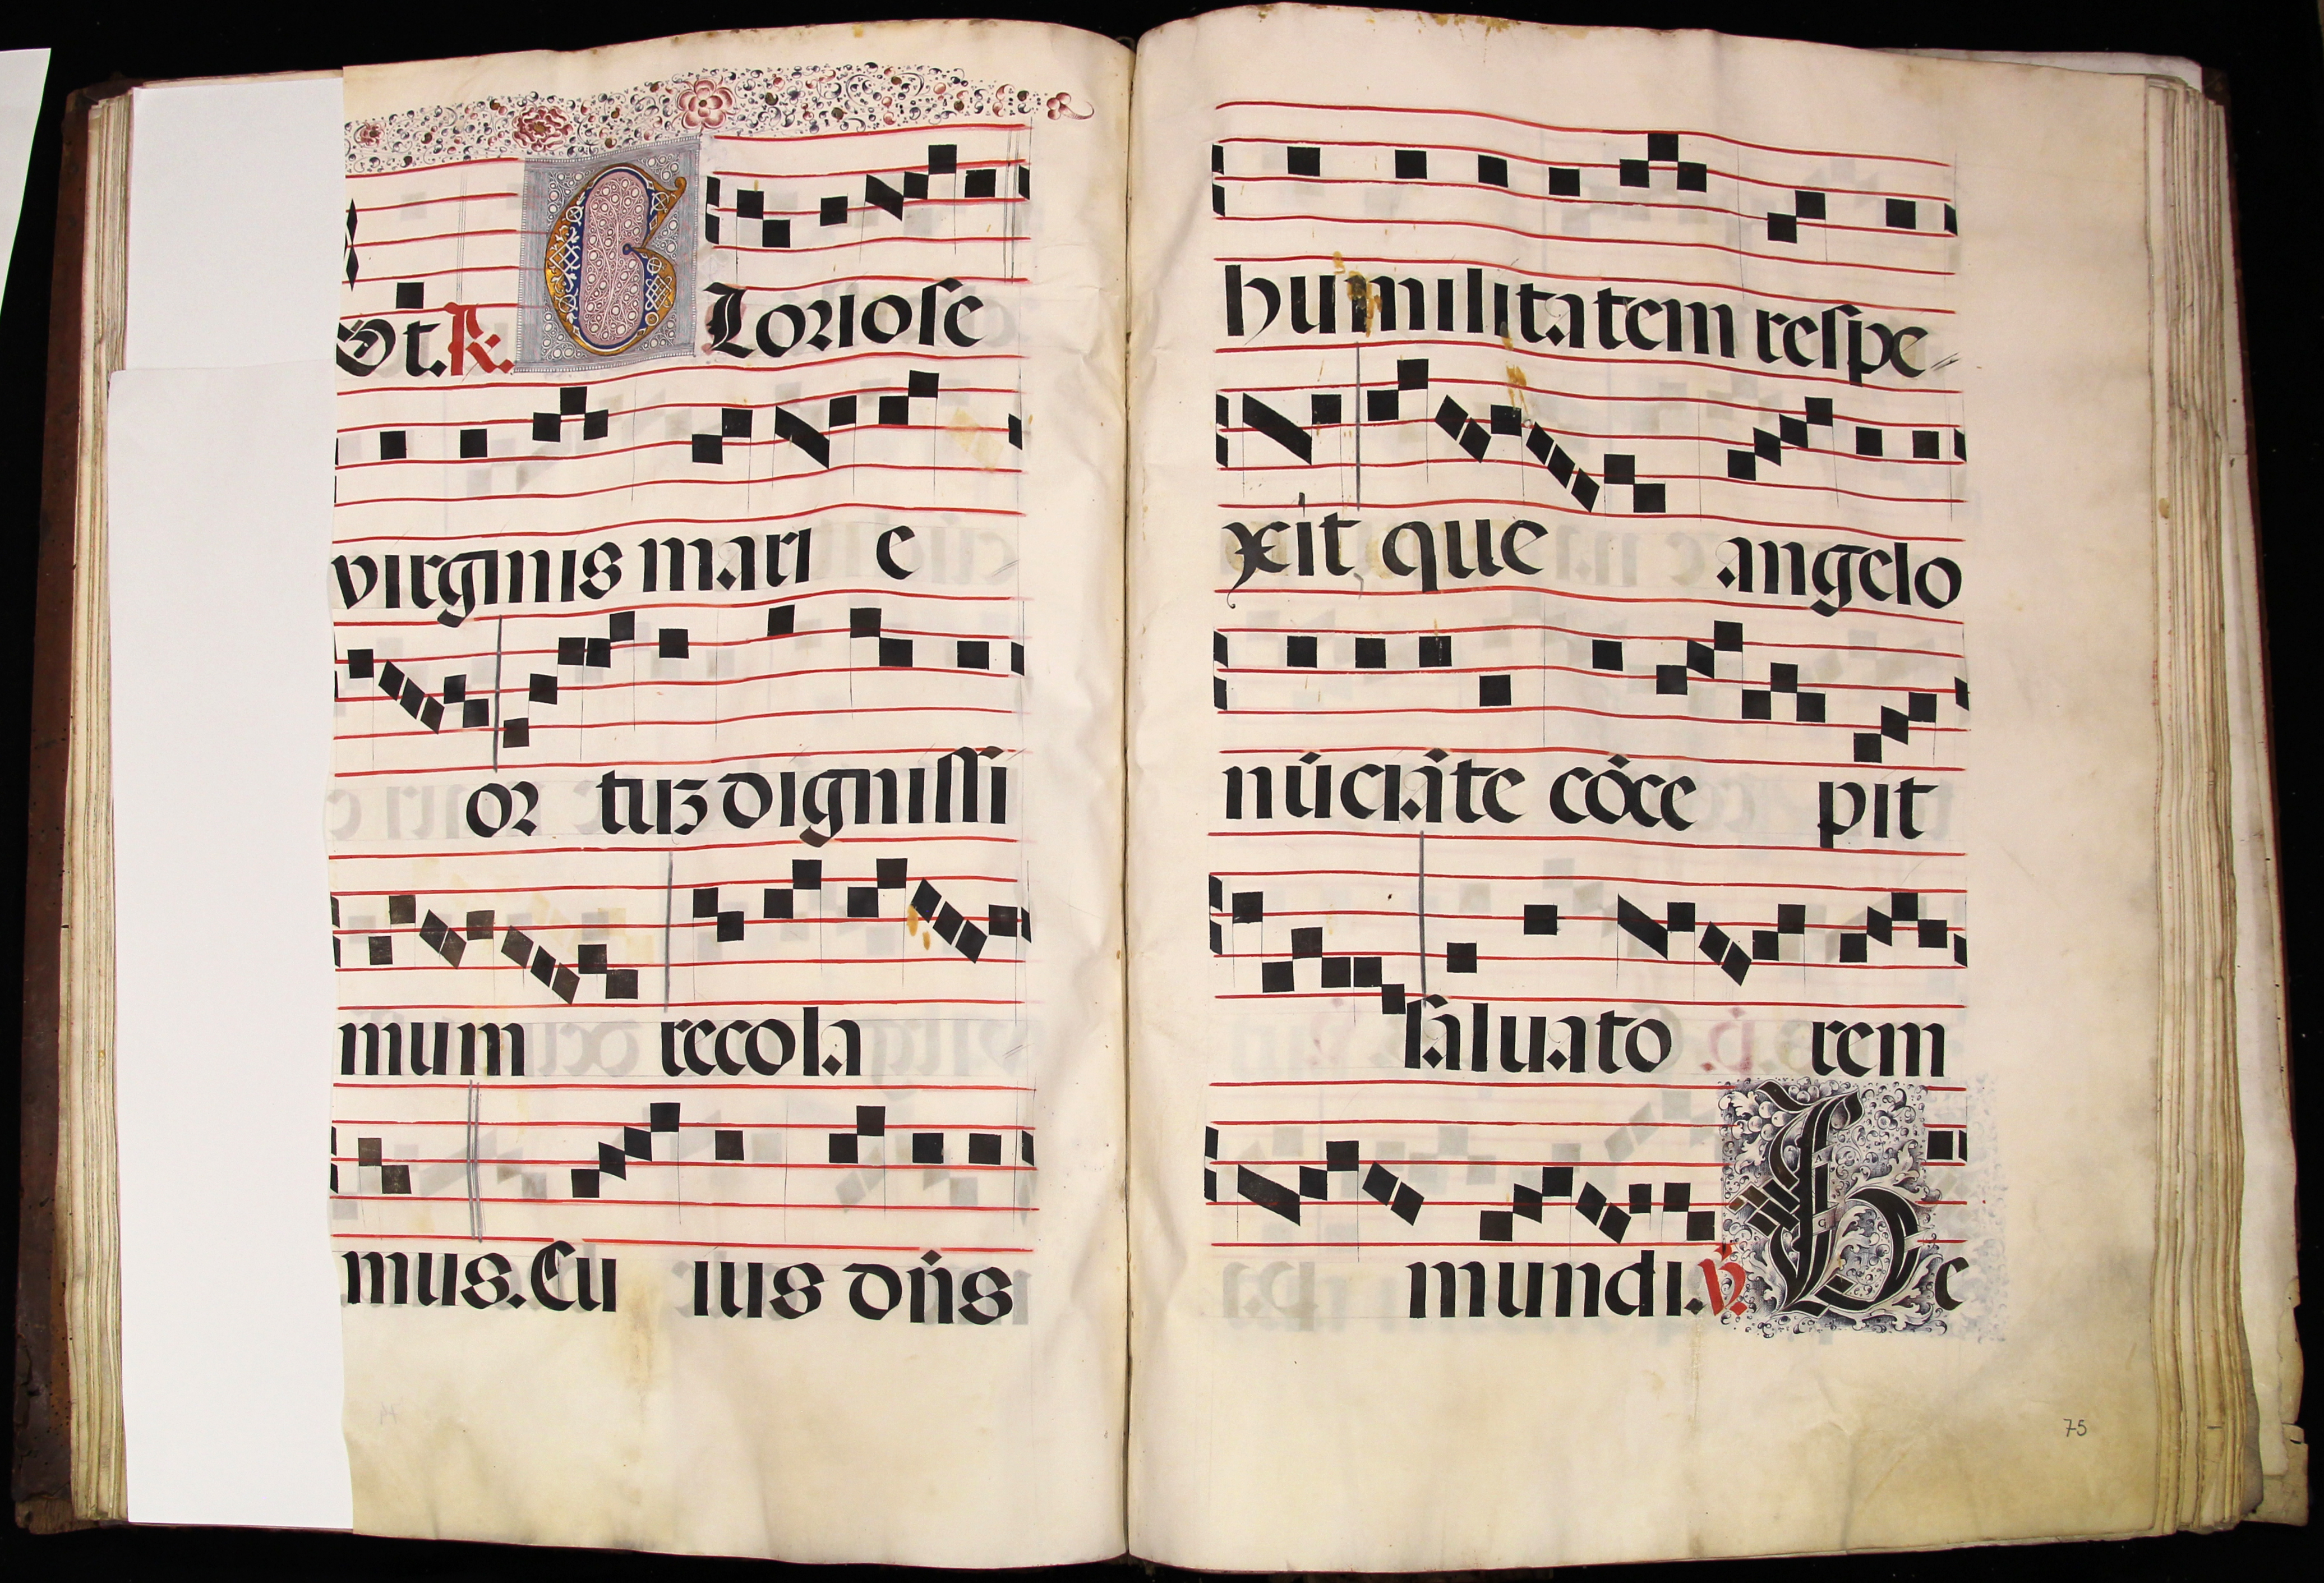 Et. R. Gloriose
virginis mari e
or tuʒ dignissi
mum recola
mus. Cu ius dn̄s
humilitatem respe-
xit que angelo
nūciāte cōce pit
saluato rem
mundi. V. He
75